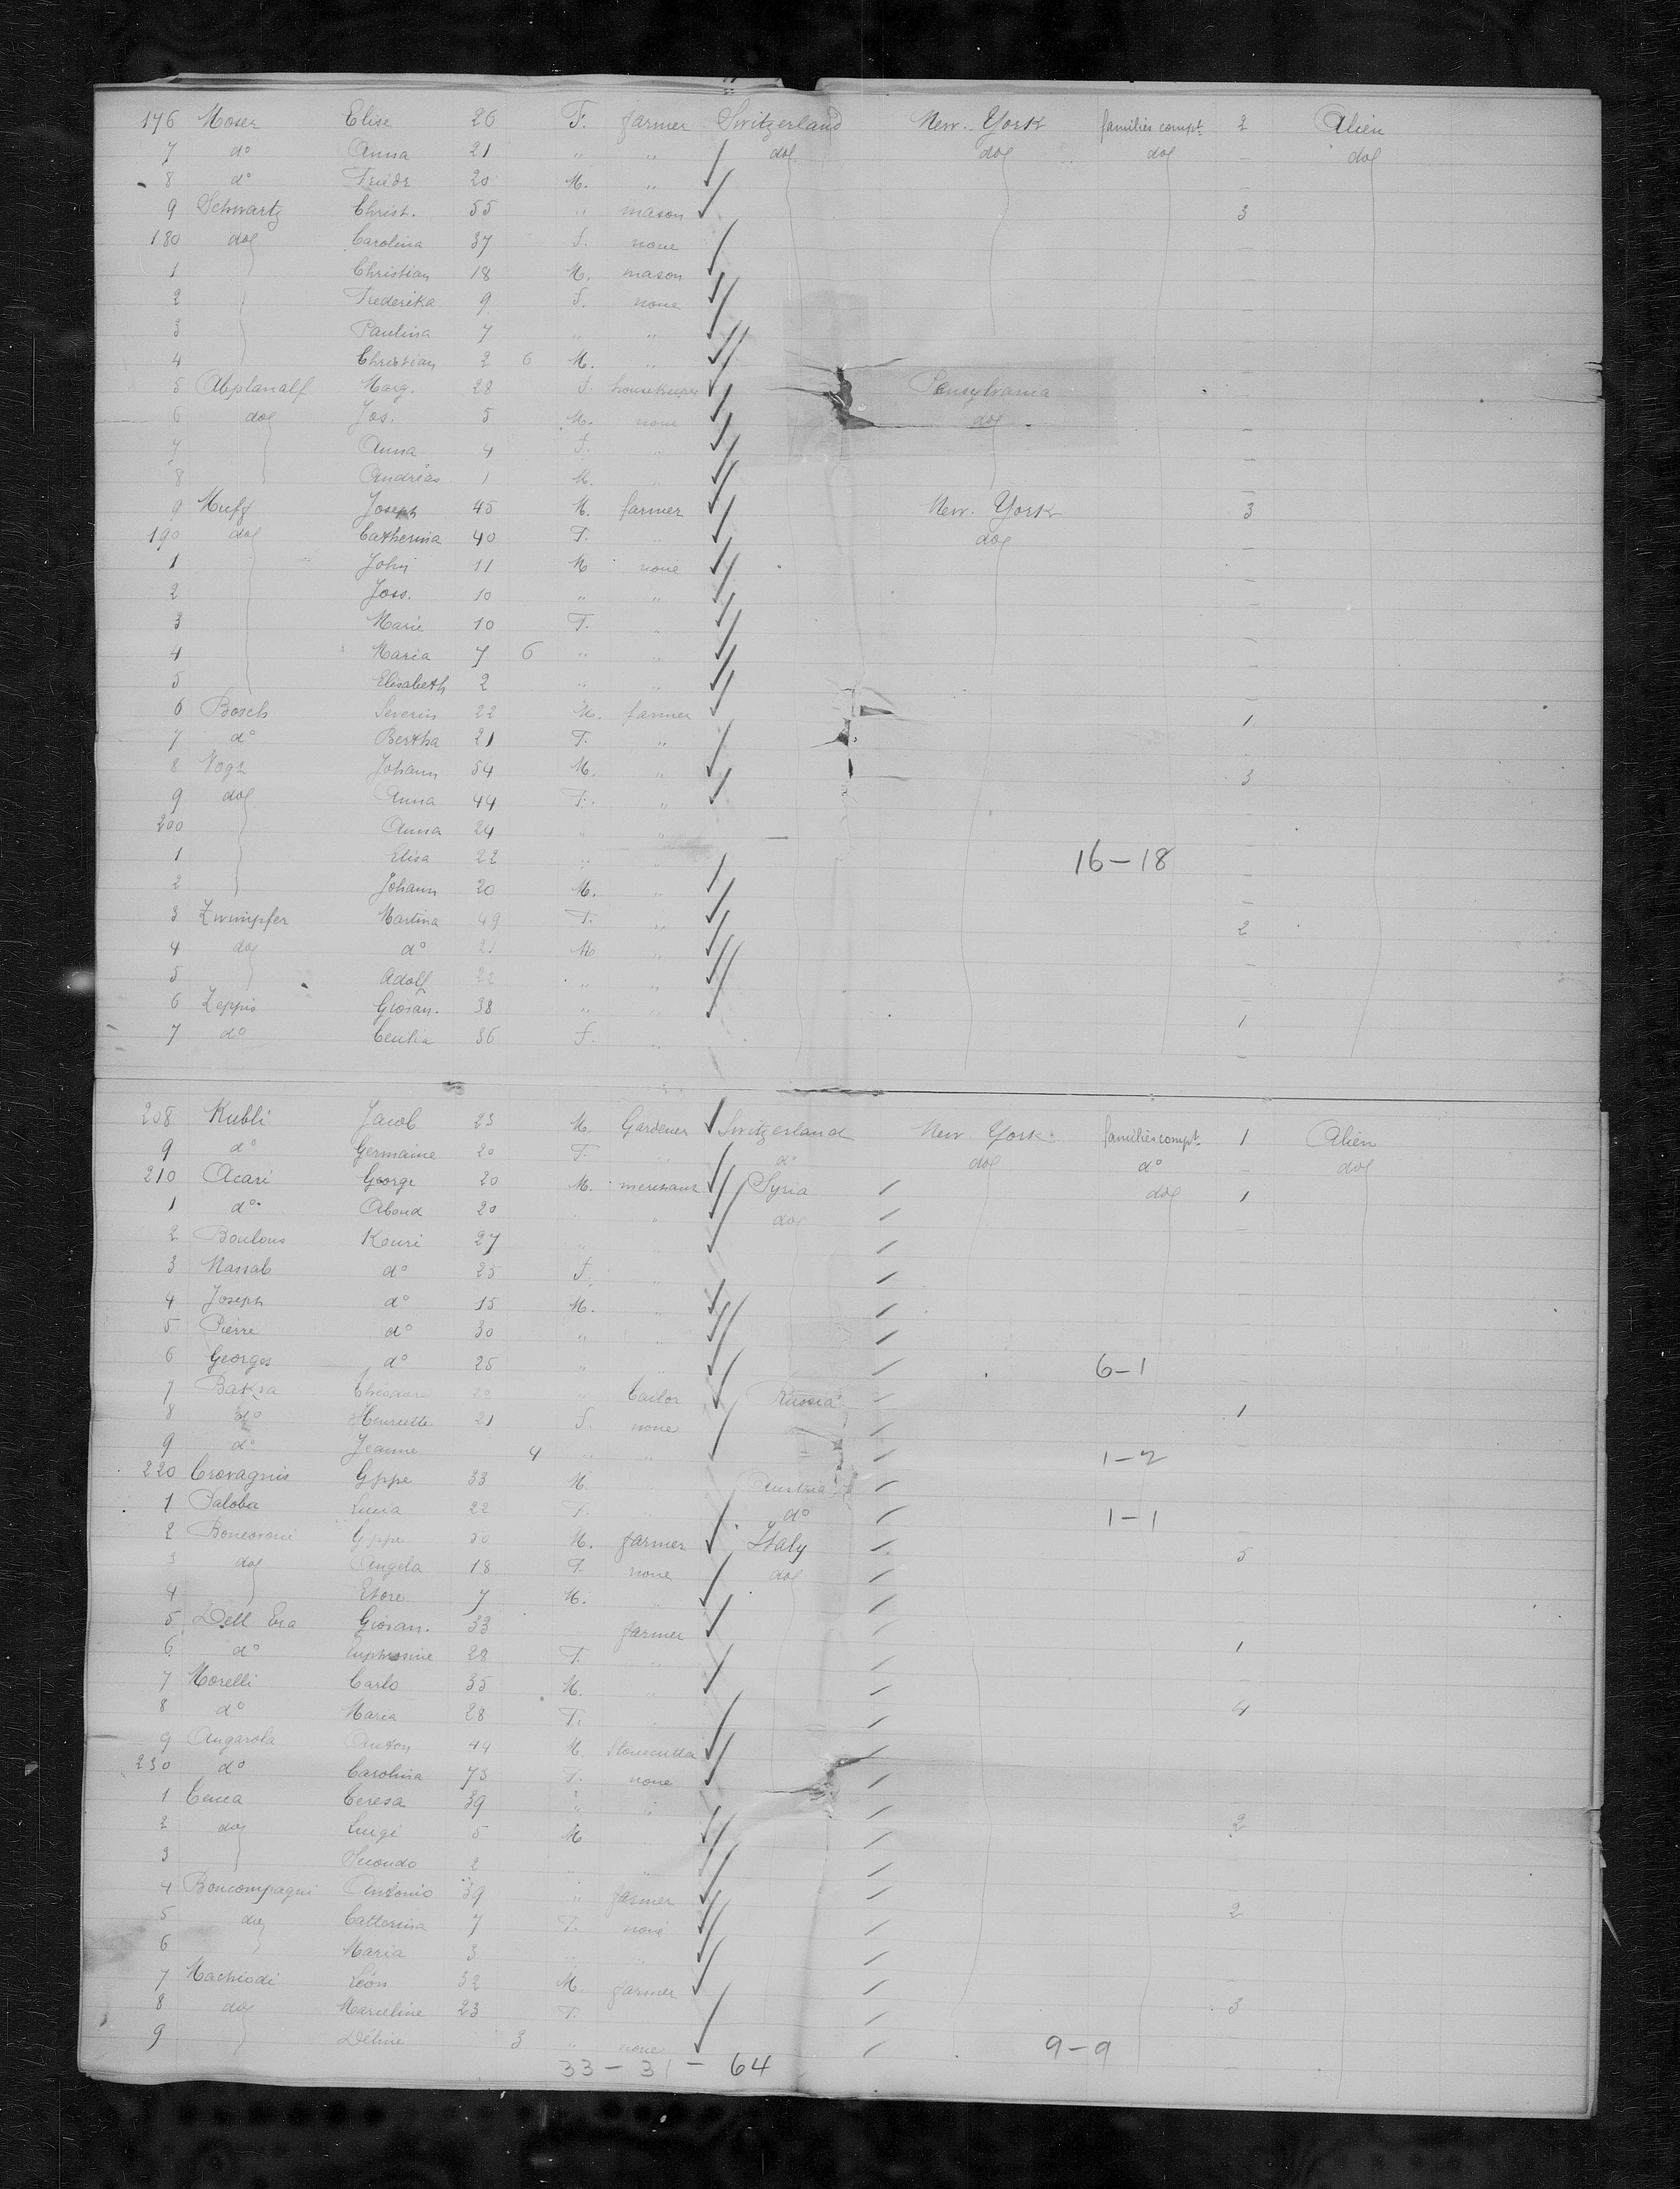 176 Moser Elise 26 F. farmer Switzerland New. York families compt. 2 Alien
7 do Anna 21 " " do do do - do
8 do Friedr 20 M. " -
9 Schwartz Christ. 55 " mason 3
180 do Carolina 37 F. none -
1 Christian 18 M. mason -
2 Frederika 9 F. none -
3 Paulina 7 " " -
4 Christian 2 6 M. " -
5 Abplanalf Marg. 28 F. housekeeper Pensylvania -
6 do Jos. 5 M. none do -
7 Anna 4 F. " -
8 Andréas 1 M. " -
9 Joseph 45 M. farmer New. York 3
190 do Catherina 40 F. " do -
1 John 11 M none -
2 Joss. 10 " " -
3 Marie 10 F. " -
4 Maria 7 6 " " -
5 Elisabeth 2 " " -
6 Bosch Severin 22 M. farmer 1
7 do Bertha 21 F. " -
8 Vogt Johann 54 M. " 3
9 do Anna 44 F. " -
200 Anna 24 " " -
1 Elisa 22 " " 16-18 -
2 Johann 20 M. " -
3 Zwimpfer Martina 49 F. " 2
4 do do 21 M " -
5 Adolf 22 " " -
6 Zeppis Giovan. 38 " " 1
7 do Cecilia 36 F. " -
208 Kubli Jacob 23 M. Gardener Switzerland New. York families compt. 1 Alien
9 do Germaine 20 F. " do do do - do
210 Acari George 20 M. merchant Syria do 1
1 do Aboud 20 " " do -
2 Boulous Kouri 27 " " -
3 Massab do 25 F. " -
4 Joseph do 15 M. " -
5 Pierre do 30 " " -
6 Georges do 25 " " 6-1 -
7 Bakra " tailor Russia 1
8 do Henriette 21 F. none -
9 do Jeanne 4 " " 1-2 -
220 Crovagnis Gppe 33 M. Austria
1 Paloba Lucia 22 F. " do 1-1 -
2 Gppe 50 M. farmer Italy 5
3 do Angela 18 F. none do -
4 Etore 7 M. " -
5 Dell Era Giovan. 33 farmer 1
6 do Euphrosine 28 F. " -
7 Morelli Carlo 35 M. " 4
8 do Maria 28 F. " -
9 Angarola Anton 49 M stonecutter
230 do Carolina 73 F. none
1 Teresa 39 " " 2
2 do Luigi 5 M "
3 Secondo 2 " "
4 Boncompagni Antonio 39 " farmer 2
5 do Catterina 7 F. none
6 Maria 3 " "
7 Machiodi Léon 32 M. farmer 3
8 do Marceline 23 F.
9 Déline 3 " none 9-9 -
33 - 31 - 64